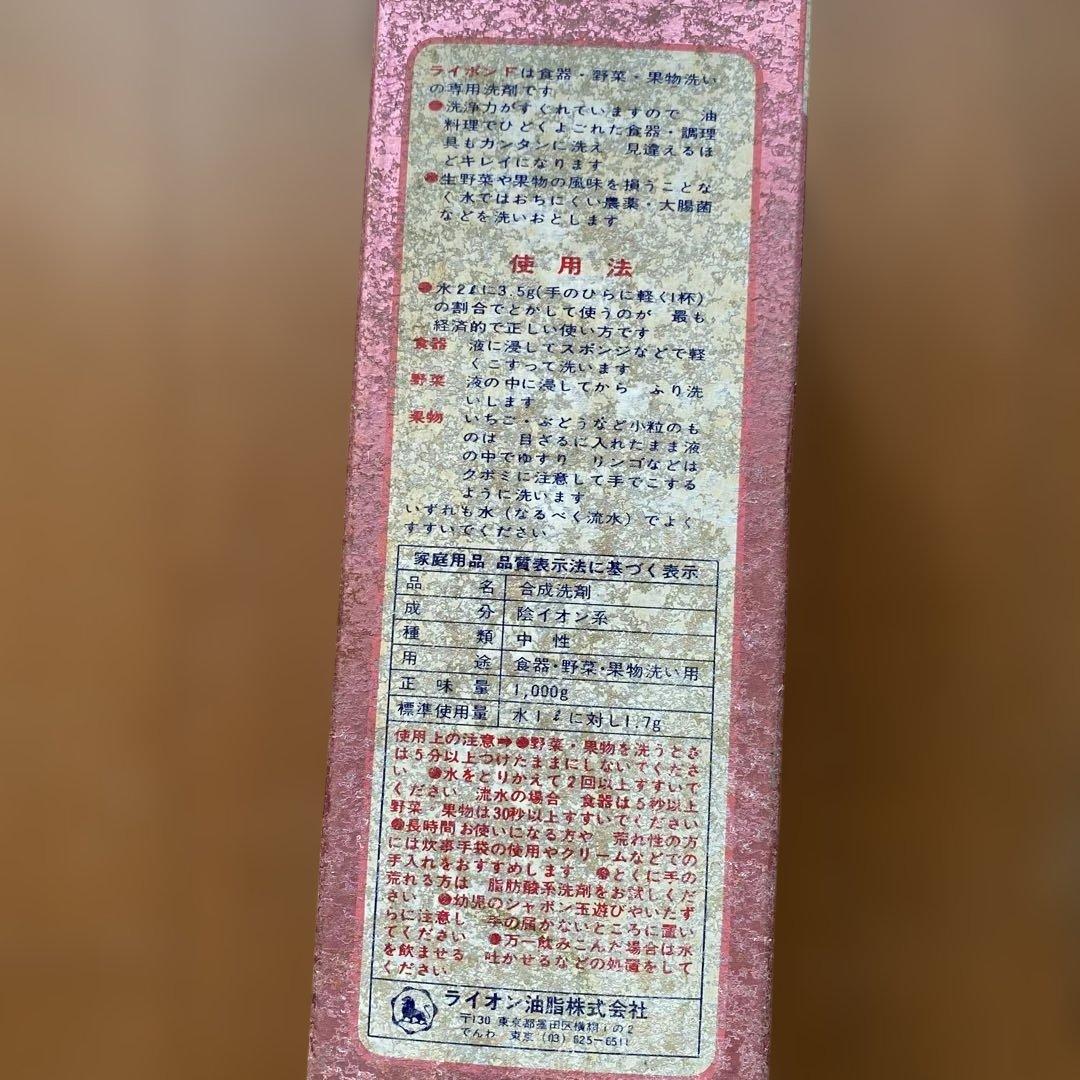 ライポンFは食器・野菜・果物洗い
の専用洗剤です
●洗浄力がすぐれていますので 油
料理でひどくよごれた食器・調理
具もカンタンに洗え 見違えるほ
どキレイになります
●生野菜や果物の風味を損うことな
く水ではおちにくい農薬・大腸菌
などを洗いおとします
使用法
●水2ℓに3.5g(手のひらに軽く1杯)
の割合でとかして使うのが 最も
経済的で正しい使い方です
食器 液に浸してスポンジなどで軽
くこすって洗います
野菜 液の中に浸してから ふり洗
いします
果物 いちご・ぶどうなど小粒のも
のは 目ざるに入れたまま液
の中でゆすり リンゴなどは
クボミに注意して手でこする
ように洗います
いずれも水(なるべく流水)でよく
すすいでください
家庭用品 品質表示法に基づく表示
品名 合成洗剤
成分 陰イオン系
種類 中性
用途 食器・野菜・果物洗い用
正味量 1,000g
標準使用量 水1ℓに対し1.7g
使用上の注意➡●野菜・果物を洗うとき
は5分以上つけたままにしないでくださ
い ●水をとりかえて2回以上すすいで
ください 流水の場合 食器は5秒以上
野菜・果物は30秒以上すすいでください
●長時間お使いになる方や 荒れ性の方
には炊事手袋の使用やクリームなどでの
手入れをおすすめします ●とくに手の
荒れる方は 脂肪酸系洗剤をお試しくだ
さい ●幼児のシャボン玉遊びやいたず
らに注意し 手の届かないところに置い
てください ●万一飲みこんだ場合は水
を飲ませる 吐かせるなどの処置をして
ください
ライオン油脂株式会社
〒130 東京都墨田区横網1の2
でんわ 東京(03)625-6511